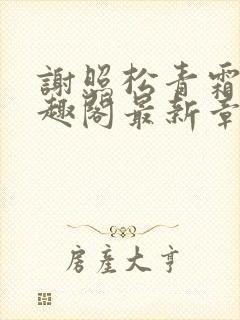 謝照松青霜
趣閣最新章
房產大亨